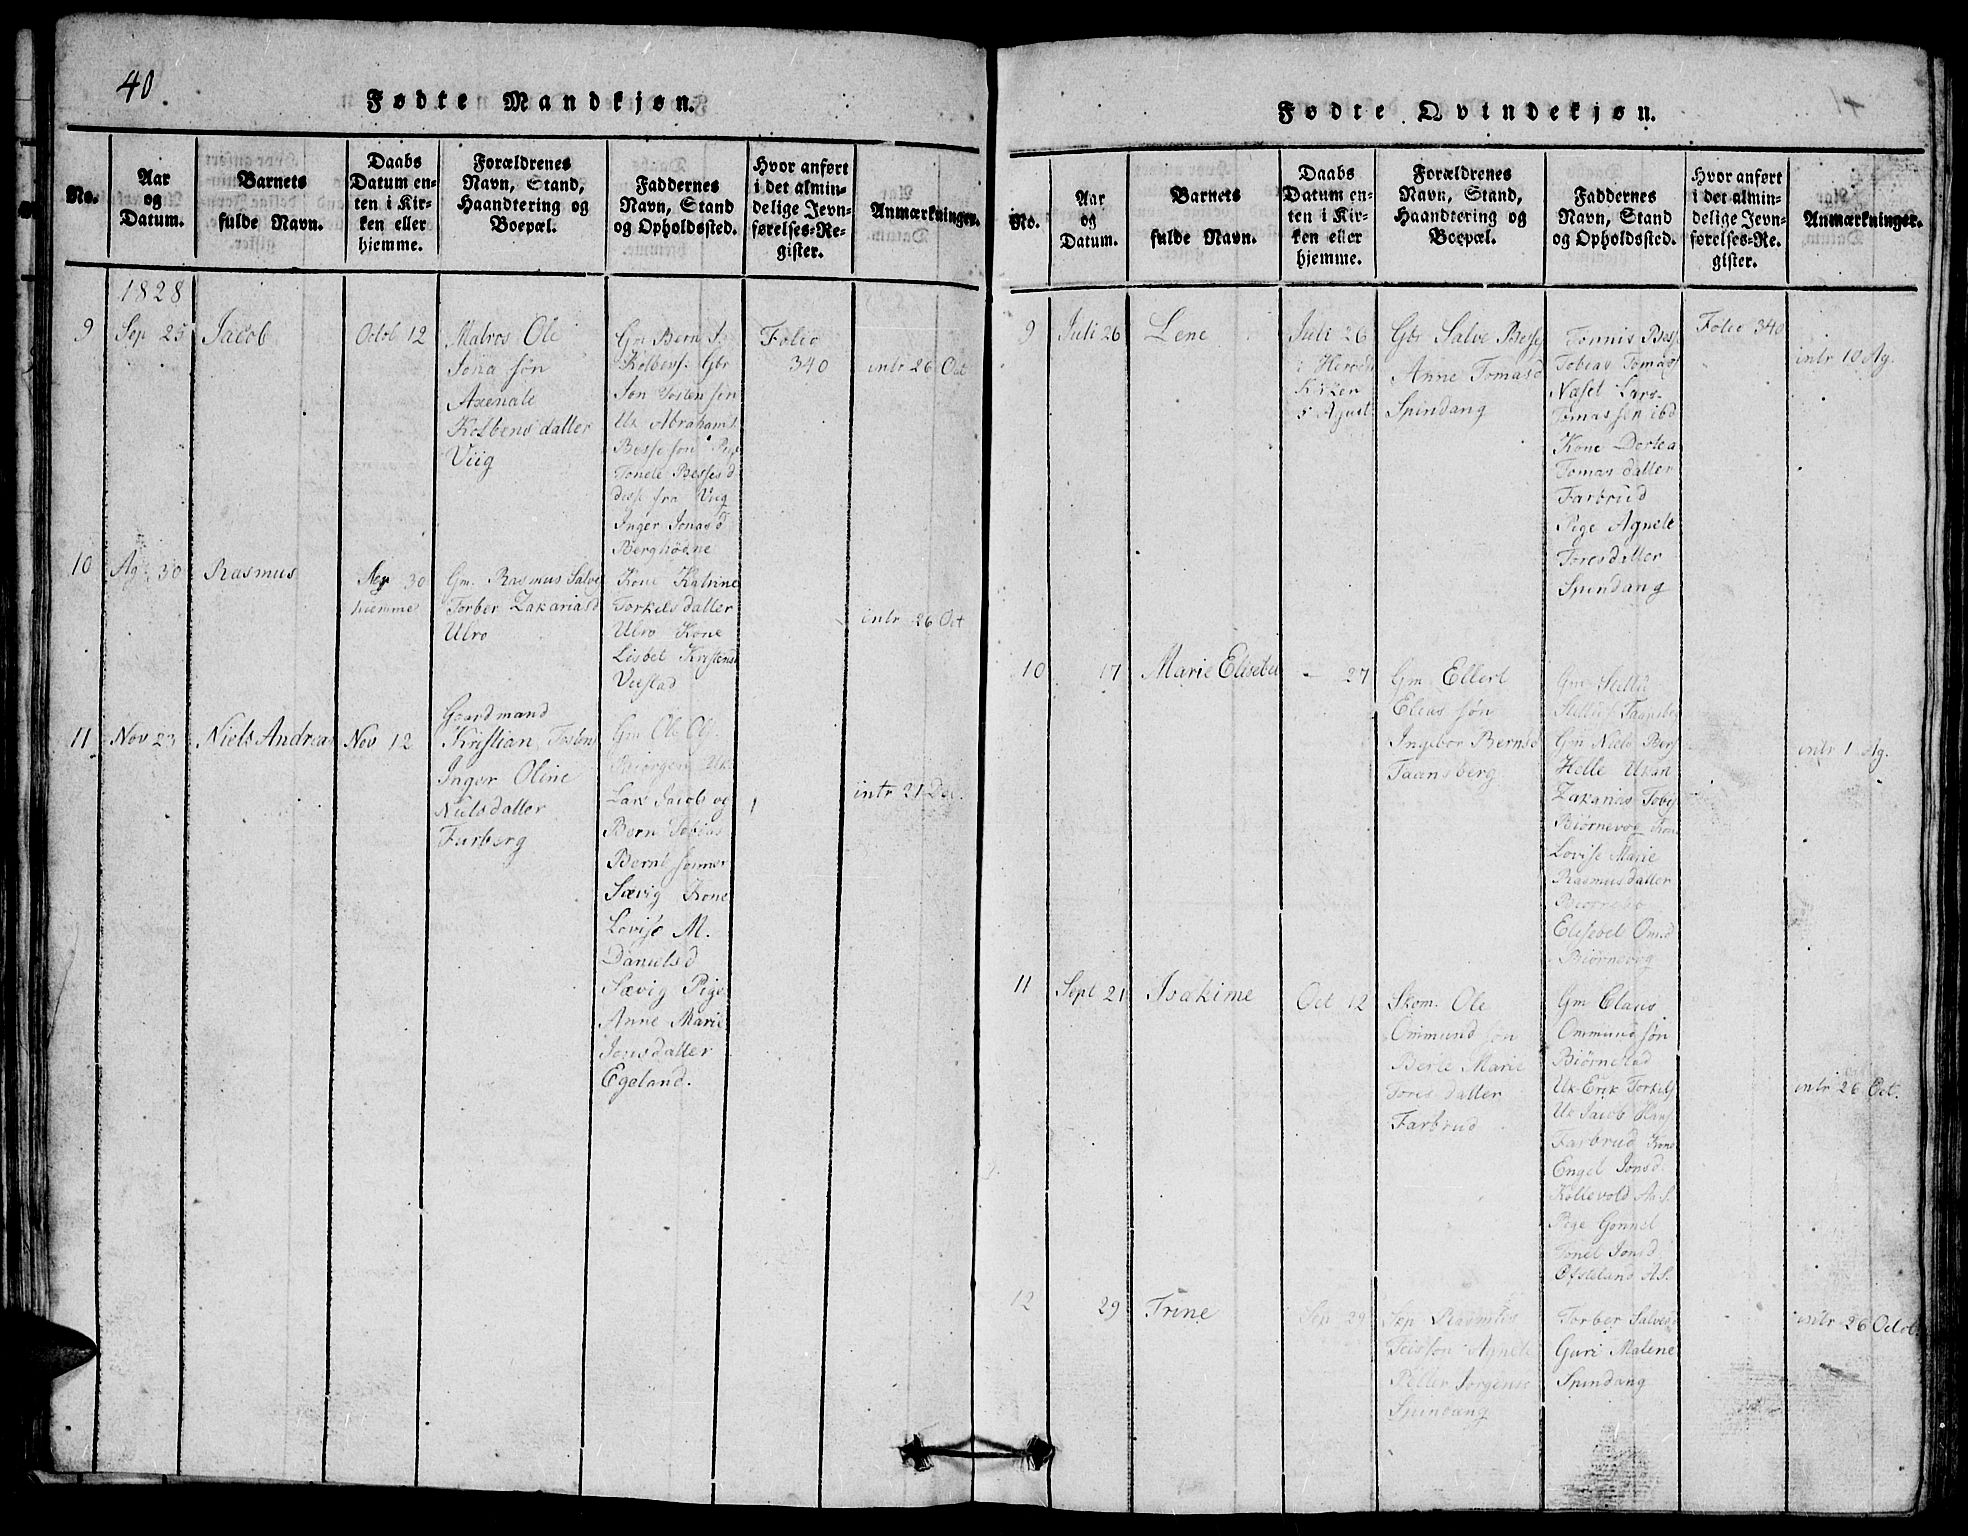 40.
Fødte Mandkjøn.
No.
Aar
og
Datum.
Barnets
fulde Navn.
Daabs
Datum en-
ten i Kir-
ken eller
hjemme.
Forældrenes
Navn, Stand,
Haandtering og
Boepæl.
Faddernes
Navn, Stand
og Opholdssted.
Hvor anført
i det almin-
delige Jevn-
førelses-Re-
gister.
Anmærkninger.
1828
9
Sep 25
Jacob
Octob 12
Matros Ole
Jona søn
Axenale
Kolbens datter
Viig
Gm Bern
Kolbens. Gbr
Jon Tosten søn
Uk Abrahams
Besse søn Pige
Tonele Bessesd
desse fra Viig
Inger Jonasd
Berghødne
Folio
340
intr 26 Oct
10
Ag 30
Rasmus
Agu 30
hiemme
Gm. Rasmus Salve
Torber Zakariasd
Ulro
Kone Katrine
Torkelsdatter
Ulro Kone
Lisbet Kristens
Veistad
intr 26 Oct
11
Nov 23
Niels Andreas
Nov 12
Gaardmand
Kristian Tostens
Inger Oline
Nielsdatter
Furberg
Gm Ole Ols
Lars Jacob og
Bern Tobias
Bernt sønner
Sævig Kone
Lovise M.
Danielsd
Sævig Pige
Anne Marie
Jonsdatter
Egeland.
intr 21 Dec.
Fødte Qvindekjøn.
No.
Aar
og
Datum.
Barnets
fulde Navn.
Daabs
Datum en-
ten i Kir-
ken eller
hjemme.
Forældrenes
Navn, Stand,
Haandtering og
Boepæl.
Faddernes
Navn, Stand
og Opholdssted.
Hvor anført
i det almin-
delige Jevn-
førelses-Re-
gister.
Anmærkninger.
9
Juli 26
Lene
Juli 26
i Herreds
Kirken
5 Agust
Gbr Salve Besse
Anne Tomasd
Spindang
Tonnis Bess
Tobias Tomass
Næset Lars
Tomassen ibd
Kone Dortea
Tomas datter
Farbrud
Pige Agnete
Toresdatter
Spindang
Folio 340
intr 10 Ag.
10
17
Marie Elisebet
- 27
Gm Ellert
Elias søn
Ingebor Bernsd
Taansberg
Gm
Taansberg
Gm Niels Bers
Helle Ukarl
Zakarias Tobis
Biørnevog Kone
Lovise Marie
Rasmusdatter
Elisebet Omsd
Biørnevog
intr 1 Ag.
11
Sept 21
Joakime
Oct 12
Skom. Ole
Ommund søn
Berte Marie
Toris datter
Farbrud
Gm Claus
Ommund søn
Biørnestad
Uk Erik Torkels
Uk Jacob Hans
Farbrud Kone
Engel Jonsd.
Kollevold As.
Pige Gonnel
Tonel Jonsd
Ofsteland As.
intr 26 Oct.
12
29
Trine
Sep 29
Sep Rasmus
Teisson Agnete
Petter Jørgensd
Spindang
Torber Salves
Guri Malene
Spindang
intr 26 Octob